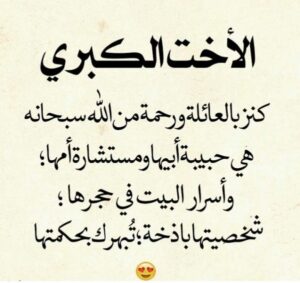 الأخت الكبري
كنز بالعائلة ورحمة من الله سبحانه
هي حبيبة أبيها ومستشارة أمها؛
وأسرار البيت في حجرها؛
شخصيتها باذخة؛ تُبهرك بحكمتها
😍